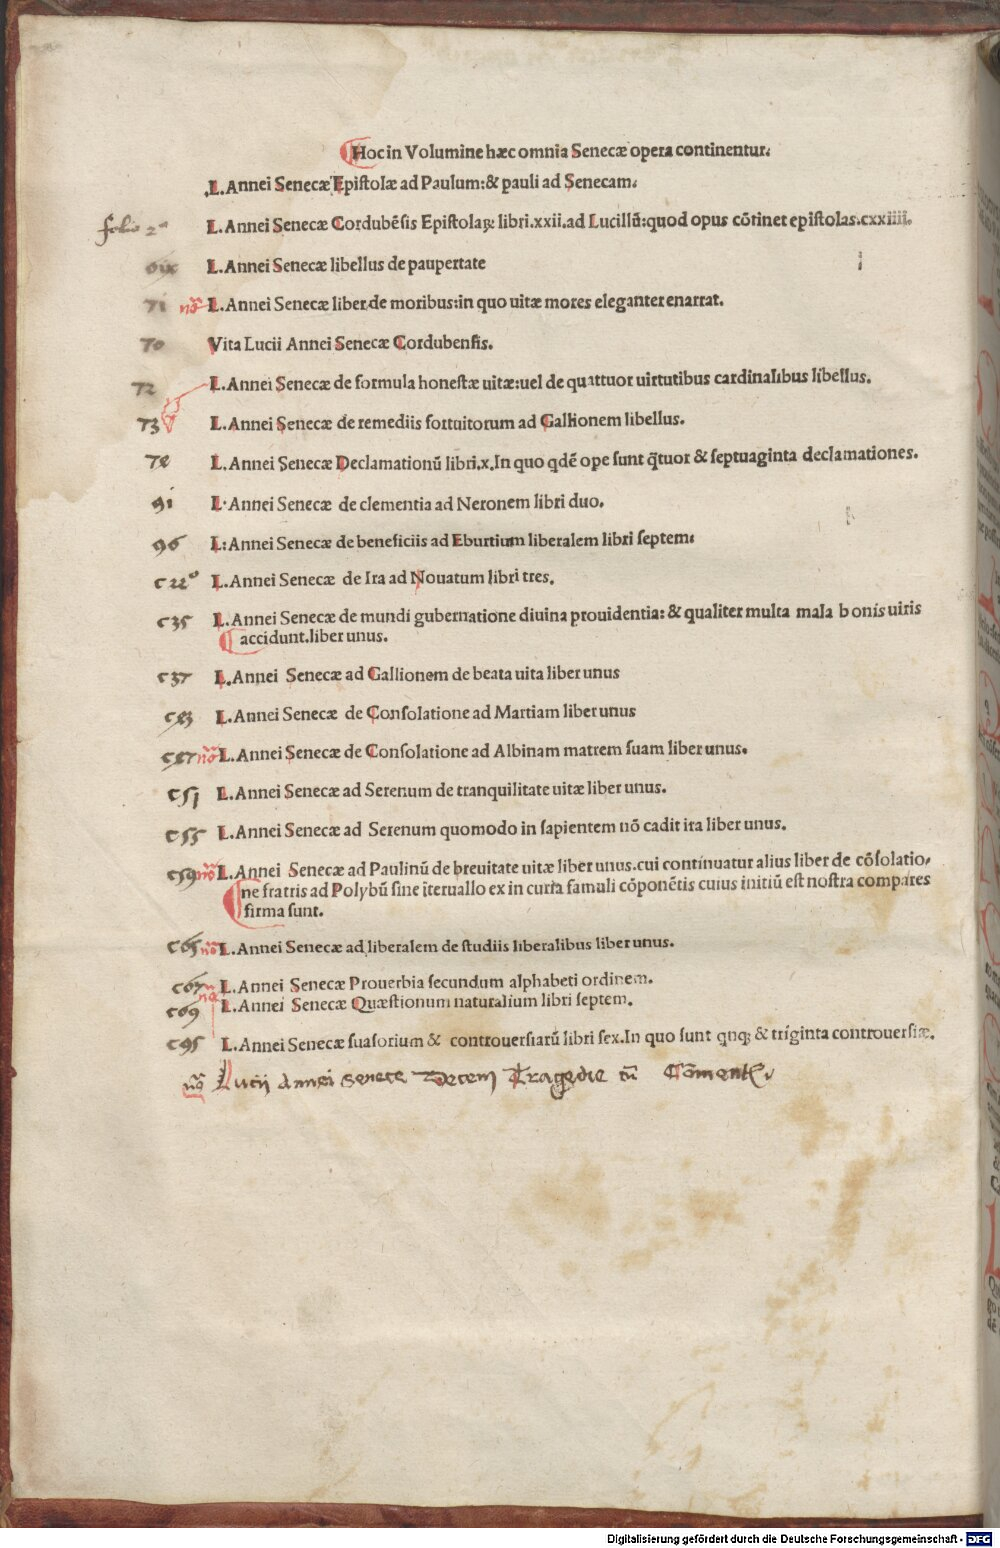 Hoc in Volumine hæc omnia Senecæ opera continentur.
L. Annei Senecæ Epistolæ ad Paulum: & pauli ad Senecam.
folio 2º L. Annei Senecæ Cordubēsis Epistolaꝝ libri.xxii.ad Lucillū:quod opus cōtinet epistolas.cxxiiii.
L. Annei Senecæ libellus de paupertate
71 nō L. Annei Senecæ liber de moribus:in quo uitæ mores eleganter enarrat.
70 Vita Lucii Annei Senecæ Cordubensis.
72 L. Annei Senecæ de formula honestæ uitæ:uel de quattuor uirtutibus cardinalibus libellus.
73 L. Annei Senecæ de remediis fortuitorum ad Gallionem libellus.
L. Annei Senecæ Declamationū libri.x.In quo qdē ope sunt q̄tuor & septuaginta declamationes.
91 L. Annei Senecæ de clementia ad Neronem libri duo.
96 L: Annei Senecæ de beneficiis ad Eburtium liberalem libri septem:
L. Annei Senecæ de Ira ad Nouatum libri tres.
c35 L. Annei Senecæ de mundi gubernatione diuina prouidentia: & qualiter multa mala bonis uiris
accidunt.liber unus.
c37 L. Annei Senecæ ad Gallionem de beata uita liber unus
L. Annei Senecæ de Consolatione ad Martiam liber unus
nō L. Annei Senecæ de Consolatione ad Albinam matrem suam liber unus.
c51 L. Annei Senecæ ad Serenum de tranquilitate uitæ liber unus.
c55 L. Annei Senecæ ad Serenum quomodo in sapientem nō cadit ira liber unus.
c59 nō L. Annei Senecæ ad Paulinū de breuitate uitæ liber unus.cui continuatur alius liber de cōsolatio-
ne fratris ad Polybū sine iteruallo ex in curia famuli cōponētis cuius initiū est nostra compares
firma sunt.
c65 nō L. Annei Senecæ ad liberalem de studiis liberalibus liber unus.
c67 L. Annei Senecæ Prouerbia secundum alphabeti ordinem.
c69 L. Annei Senecæ Quæstionum naturalium libri septem.
c95 L. Annei Senecæ suasorium & controuersiarū libri sex.In quo sunt qnqꝫ & triginta controuersiæ.
nō Lucii Annei Senece Decem Tragedie cū
Digitalisierung gefördert durch die Deutsche Forschungsgemeinschaft - DFG